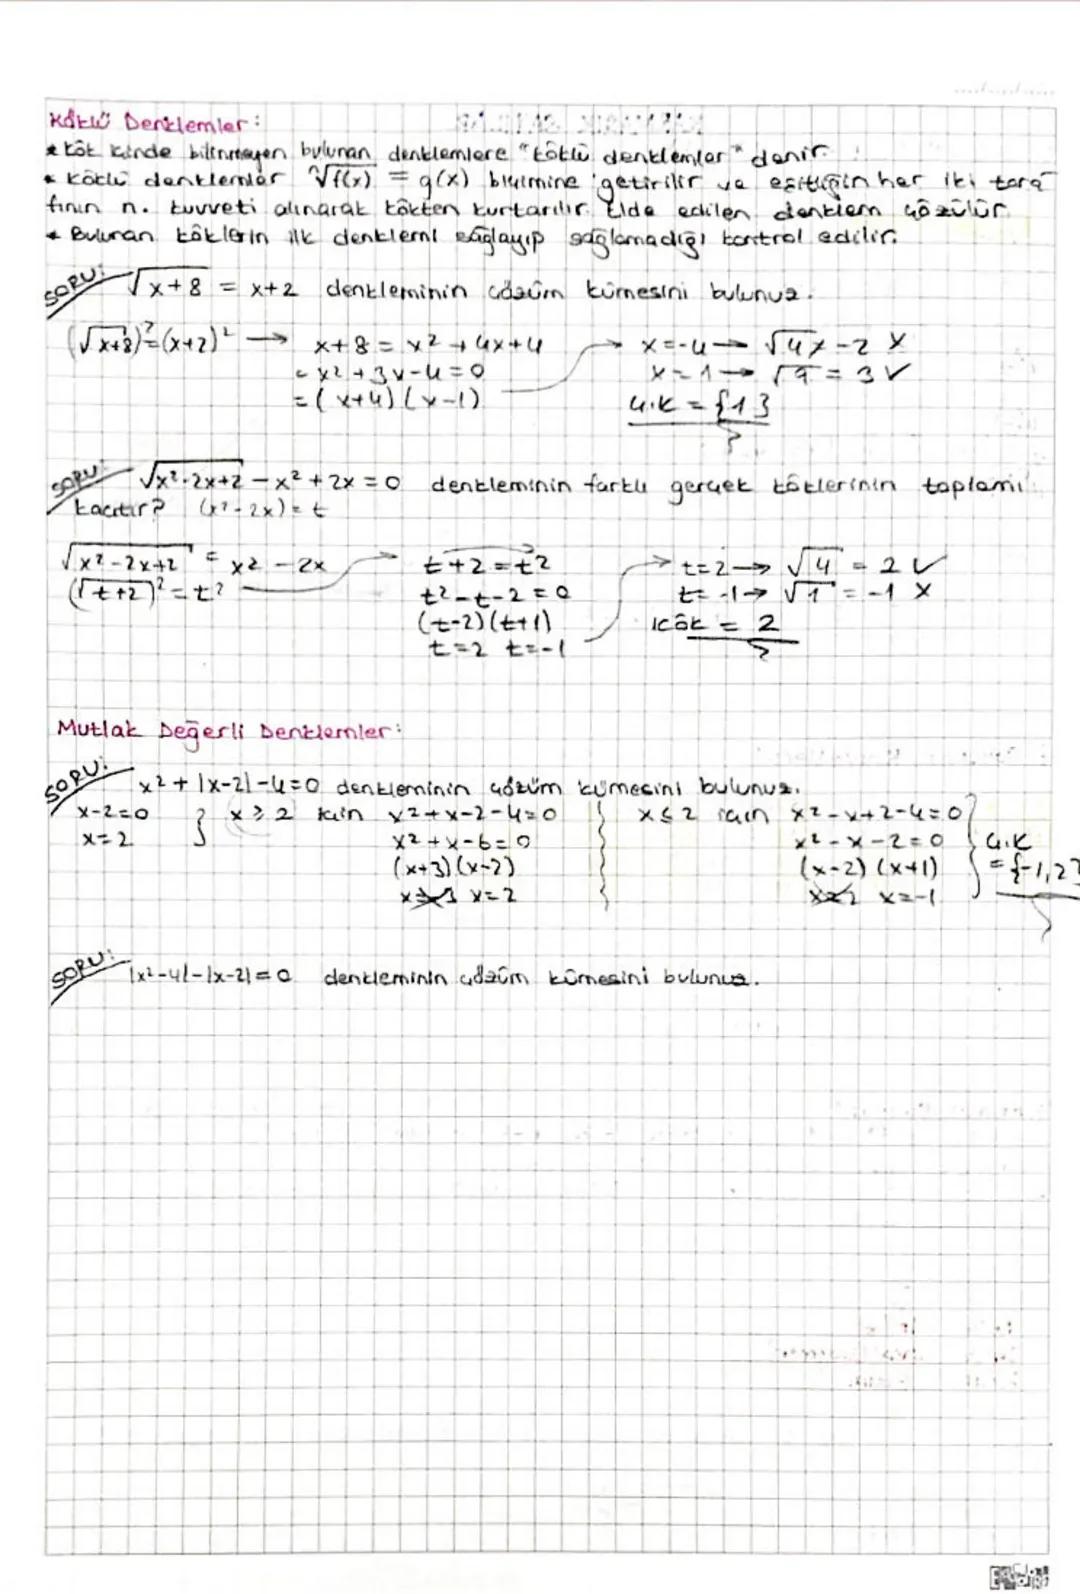 Köklü Denklemler:
* Kök içinde bilinmeyen bulunan denklemlere "köklü denklemler" denir.
* Köklü denklemler ⁿ√f(x) = g(x) biçimine getirilir ve eşitliğin her iki tara
fının n. kuvveti alınarak kökten kurtarılır. Elde edilen denklem çözülür.
* Bulunan köklerin ilk denklemi sağlayıp sağlamadığı kontrol edilir.
SORU: √x+8 = x+2 denkleminin çözüm kümesini bulunuz.
(√x+8)² = (x+2)² → x+8 = x²+4x+4 → x=-4 → √4 ≠ -2 X
= x²+3x-4=0 x=1 → √9 = 3 ✓
= (x+4)(x-1) Ç.K = {1}
SORU: √x²-2x+2 - x² + 2x = 0 denkleminin farklı gerçek köklerinin toplamı
kaçtır? (x²-2x)=t
√x²-2x+2 = x² - 2x → t+2=t² → t=2 → √4 = 2 ✓
(√t+2)² = t² t²-t-2=0 t=-1 → √1 = -1 X
(t-2)(t+1) Kök = 2
t=2 t=-1
Mutlak Değerli Denklemler:
SORU: x²+|x-2|-4=0 denkleminin çözüm kümesini bulunuz.
x-2=0 } x≥2 için x²+x-2-4=0 x≤2 için x²-x+2-4=0
x=2 x²+x-6=0 x²-x-2=0 Ç.K
(x+3)(x-2) (x-2)(x+1) = {-1,2}
x=-3 x=2 x=2 x=-1
SORU: |x²-4|-|x-2|=0 denkleminin çözüm kümesini bulunuz.